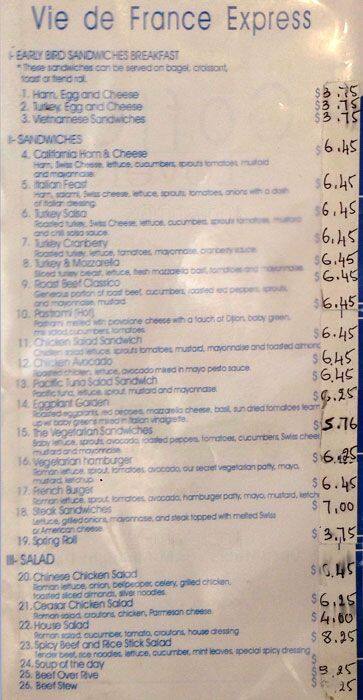 Vie de France Express
I- EARLY BIRD SANDWICHES BREAKFAST
* These sandwiches can be served on bagel, croissant,
toast or french roll.
1. Ham, Egg and Cheese $3.75
2. Turkey, Egg and Cheese $3.75
3. Vietnamese Sandwiches $3.75
II- SANDWICHES
4. California Ham & Cheese $6.45
Ham, Swiss Cheese, lettuce, cucumbers, sprouts tomatoes, mustard
and mayonnaise.
5. Italian Feast $6.45
Ham, salami, Swiss cheese, lettuce, sprouts, tomatoes, onions with a dash
of Italian dressing.
6. Turkey Salsa $6.45
Roasted turkey, Swiss Cheese, lettuce, cucumbers, sprouts tomatoes, mustard
and chilli salsa sauce.
7. Turkey Cranberry $6.45
Roasted turkey, lettuce, tomatoes, mayonnaise, cranberry sauce.
8. Turkey & Mozzarella $6.45
Sliced turkey breast, lettuce, fresh mozzarella basil, tomatoes and mayonnaise.
9. Roast Beef Classico $6.45
Generous portion of roast beef, cucumbers, roasted red peppers, sprouts,
and mayonnaise, mustard.
10. Pastrami (Hot) $6.45
Pastrami melted with provolone cheese with a touch of Dijon, baby green,
mix salad, cucumbers, tomatoes.
11. Chicken Salad Sandwich $6.45
Chicken salad lettuce, sprouts tomatoes, mustard, mayonnaise and toasted almond
12. Chicken Avocado $6.45
Roasted chicken, lettuce, avocado mixed in mayo pesto sauce.
13. Pacific Tuna Salad Sandwich $6.45
Pacific tuna, lettuce, sprout, mustard and mayonnaise.
14. Eggplant Garden $6.25
Roasted eggplants, red peppers, mozzarella cheese, basil, sun dried tomatoes team
up w/ baby greens mixed in Italian vinaigrette.
15. The Vegetarian Sandwiches $5.76
Baby lettuce, sprouts, avocado, roasted peppers, tomatoes, cucumbers, Swiss cheese
mustard and mayonnaise.
16. Vegetarian hamburger $6.25
Roman lettuce, sprout, tomatoes, avocado, our secret vegetarian patty, mayo,
mustard, ketchup.
17. French Burger $6.45
Roman lettuce, sprout, tomatoes, avocado, hamburger patty, mayo, mustard, ketchup
18. Steak Sandwiches $7.00
Lettuce, grilled onions, mayonnaise, and steak topped with melted Swiss
or American cheese.
19. Spring Roll $3.75
III- SALAD
20. Chinese Chicken Salad
Roman lettuce, onion, bellpeaper, celery, grilled chicken,
toasted sliced almonds, silver noodles.
21. Ceasar Chicken Salad $6.25
Roman salad, croutons, chicken, Parmesan cheese.
22. House Salad $4.00
Roman salad, cucumber, tomato, croutons, house dressing
23. Spicy Beef and Rice Stick Salad $8.25
Tender beef, rice noodles, lettuce, cucumber, mint leaves, special spicy dressing
24. Soup of the day
25. Beef Over Rive
26. Beef Stew